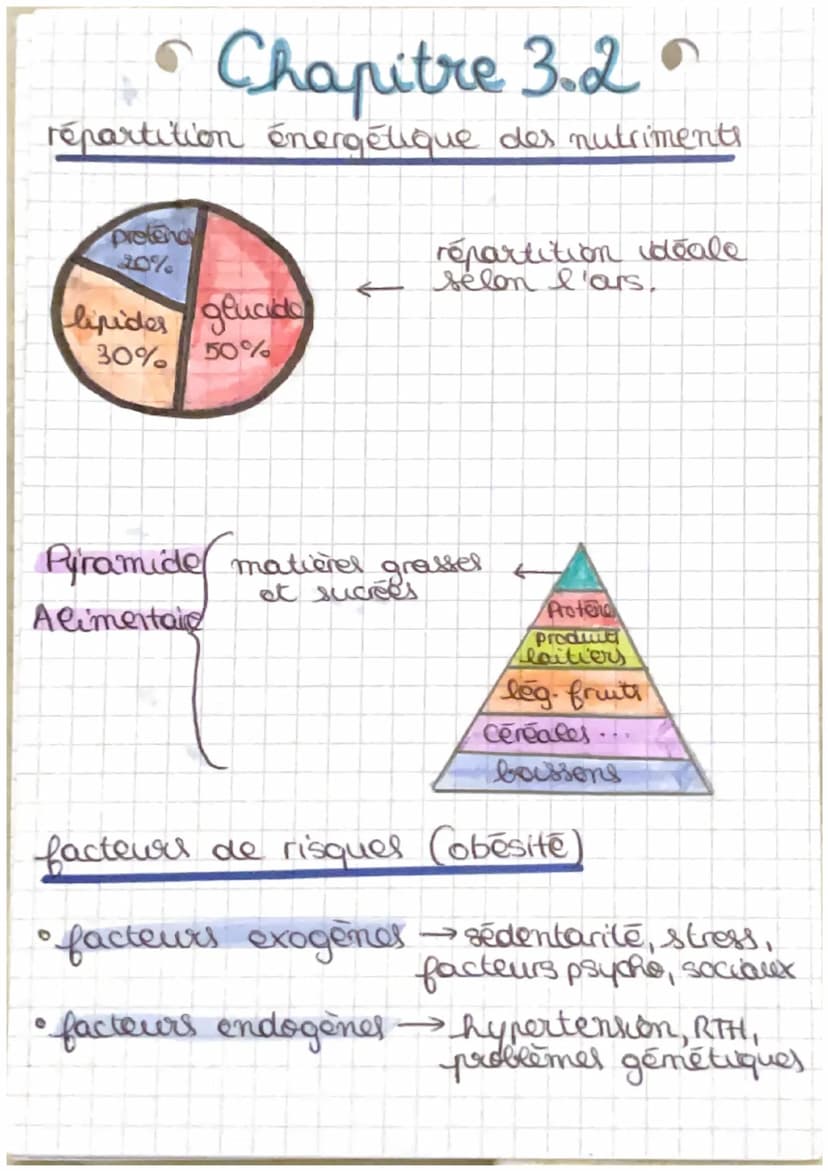 Chapitre 3.2
répartition énergétique des nutriments
protéines
20%
lipides
30%
glucide
50%
répartition idéale
selon l'ars.
←
Pyramide
Alimentaire
matières grasses
et sucrées
←
Protéine
produits
laitiers
lég. fruits
Céréales ...
boissons
facteurs de risques (obésité)
• facteurs exogènes → sédentarité, stress,
facteurs psycho, sociaux
• facteurs endogènes → hypertension, RTH,
problèmes génétiques